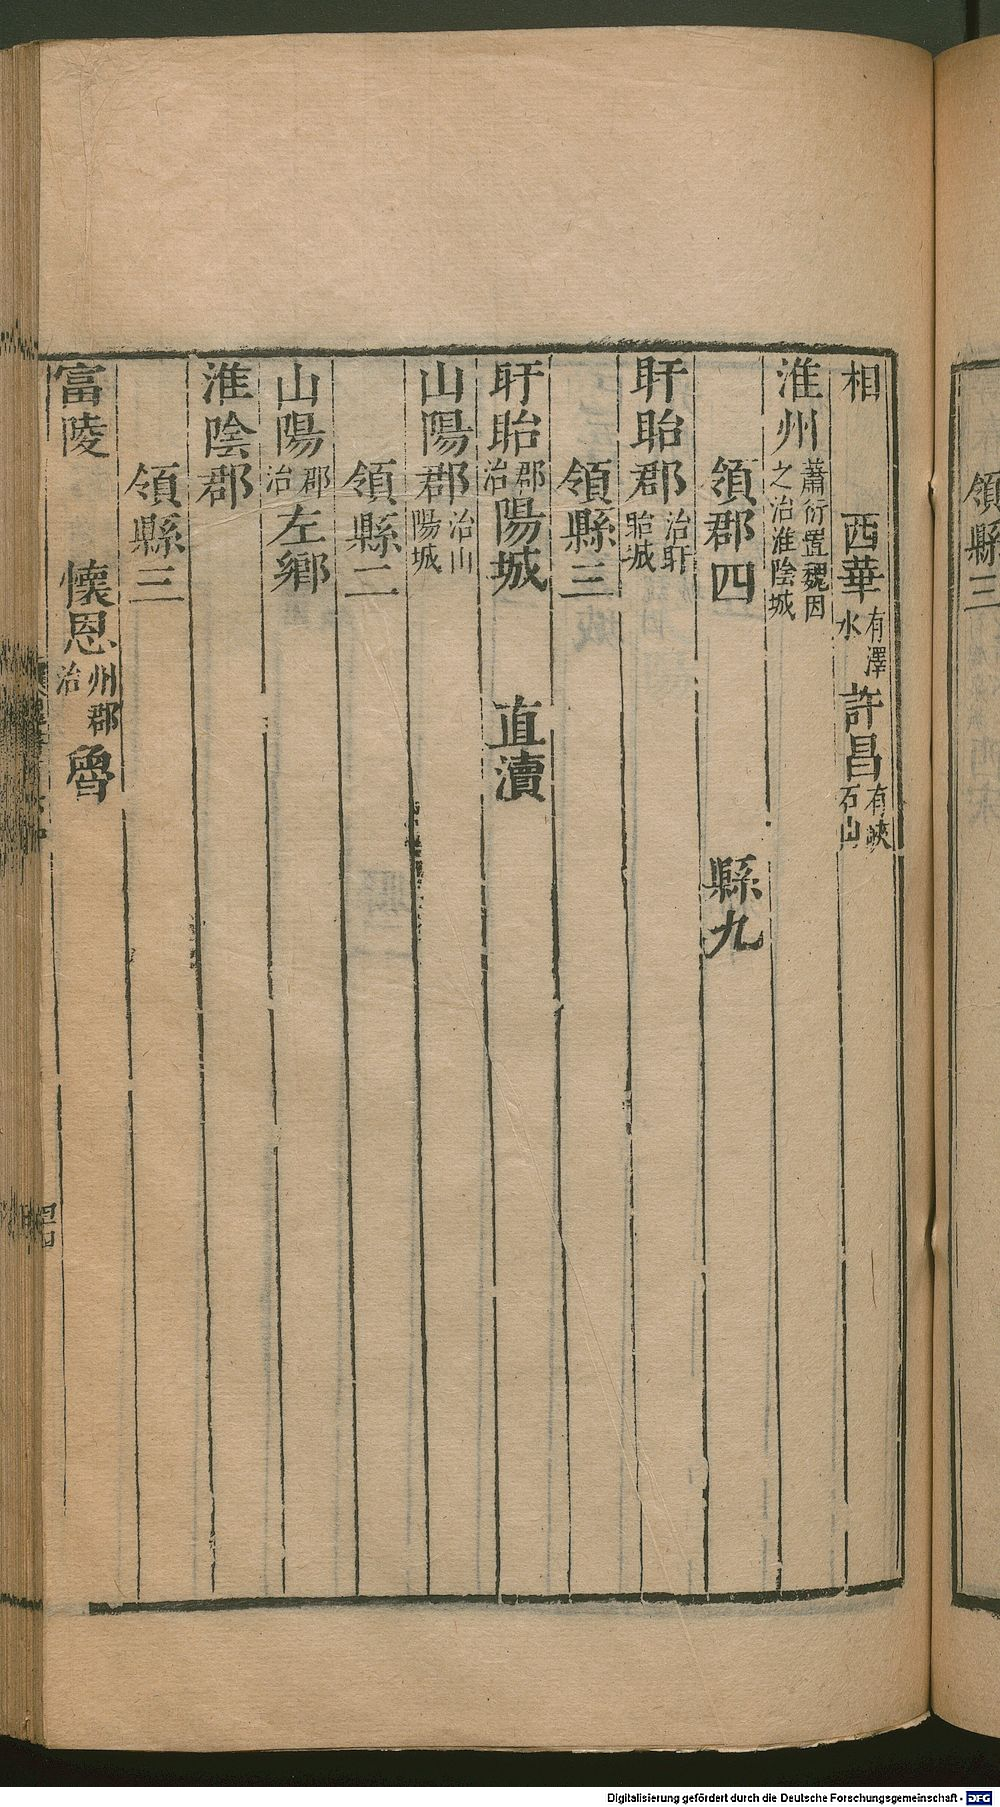 相　西華有澤水許昌有峽石山
淮州蕭衍置魏因之治淮陰城
領郡四　縣九
盱眙郡治盱眙城
領縣三
盱眙郡治陽城　直瀆
山陽郡治山陽城
領縣二
山陽郡治左鄉
淮陰郡
領縣三
富陵　懷恩州郡治魯
領縣三
Digitalisierung gefördert durch die Deutsche Forschungsgemeinschaft - DFG